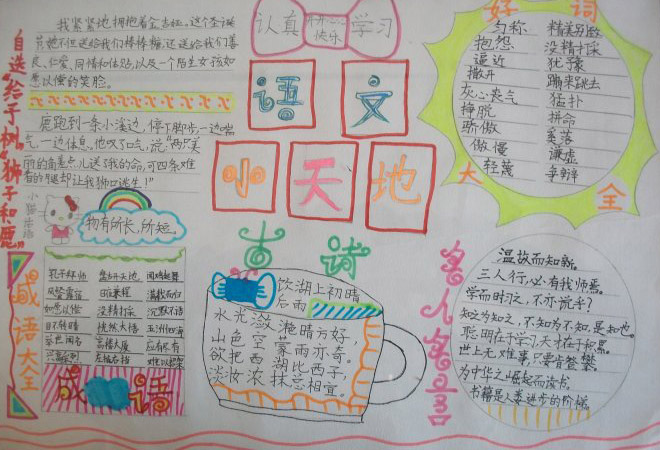 我紧紧地拥抱着金吉娅。这个圣诞
节她不但送给我们棒棒糖,还送给我们善
良、仁爱、同情和体贴,以及一个陌生女孩如
愿以偿的笑脸。
鹿跑到一条小溪边,停下脚步,一边喘
气,一边休息。他叹了口气,说:“两只美
丽的角差点儿送了我的命,可四条难
看的腿却让我狮口逃生!”
自选“给予树”“狮子和鹿”
物有所长,所短。
成语大全
成语
认真
开开心心
快乐
学习
语文
小天地
古诗
饮湖上初晴
后雨
水光潋滟晴方好,
山色空蒙雨亦奇。
欲把西湖比西子,
淡妆浓抹总相宜。
好词
大全
匀称
抱怨
逼近
撒开
灰心丧气
挣脱
骄傲
傲慢
轻蔑
精美别致
没精打采
犹豫
蹦来跳去
猛扑
拼命
奚落
谦虚
争辩
名人名言
温故而知新。
三人行,必有我师焉。
学而时习之,不亦说乎?
知之为知之,不知为不知,是知也。
聪明在于学习,天才在于积累。
世上无难事,只要肯登攀。
为中华之崛起而读书。
书籍是人类进步的阶梯。